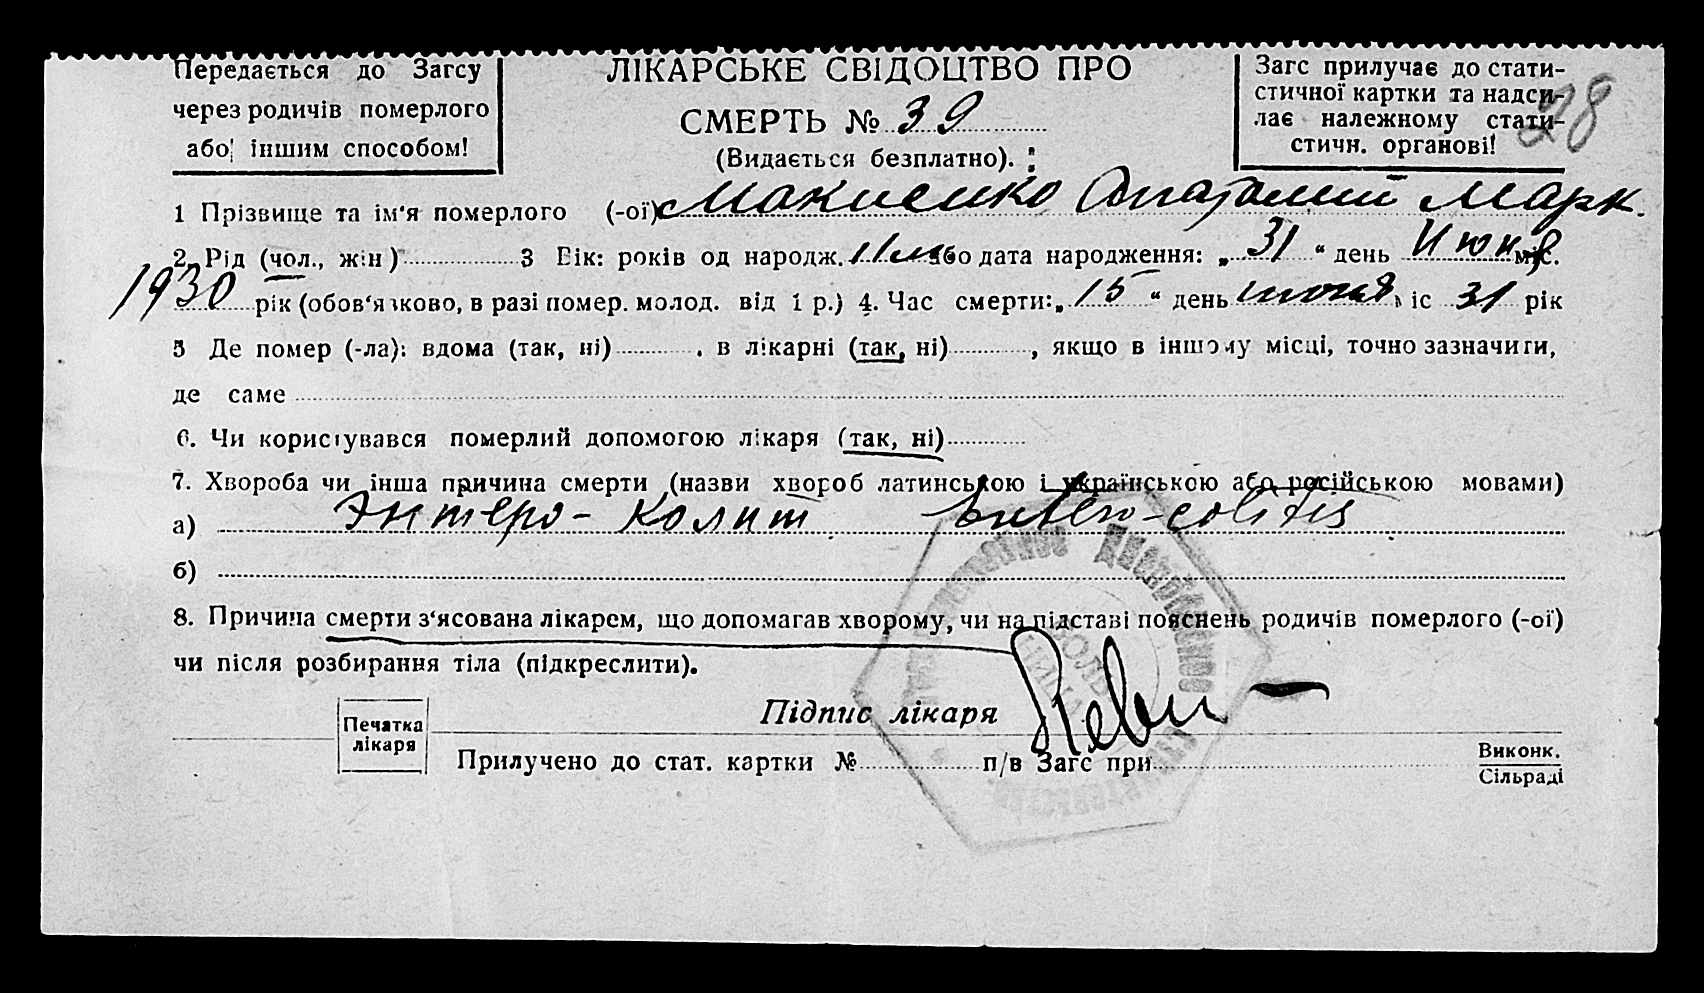 Передається до Загсу
через родичів померлого
або іншим способом!
ЛІКАРСЬКЕ СВІДОЦТВО ПРО
СМЕРТЬ № 39
(Видається безплатно).
Загс прилучає до стати-
стичної картки та надси-
лає належному стати-
стичн. органові!
28
1 Прізвище та ім'я померлого (-ої) Макиенко Анатолий Марк.
2. Рід (чол., жін) 3 Вік: років од народж. 11 м або дата народження: „31“ день Июня міс.
1930 рік (обов'язково, в разі помер. молод. від 1 р.) 4. Час смерти: „15“ день июня міс 31 рік
5 Де помер (-ла): вдома (так, ні) , в лікарні (так, ні) , якщо в іншому місці, точно зазначити,
де саме
6. Чи користувався померлий допомогою лікаря (так, ні)
7. Хвороба чи інша причина смерти (назви хвороб латинською і українською або російською мовами)
а) Энтеро-колит Entero-colitis
б)
8. Причина смерти з'ясована лікарем, що допомагав хворому, чи на підставі пояснень родичів померлого (-ої)
чи після розбирання тіла (підкреслити).
Печатка
лікаря
Підпис лікаря
Прилучено до стат. картки № п/в Загс при Виконк.
Сільраді